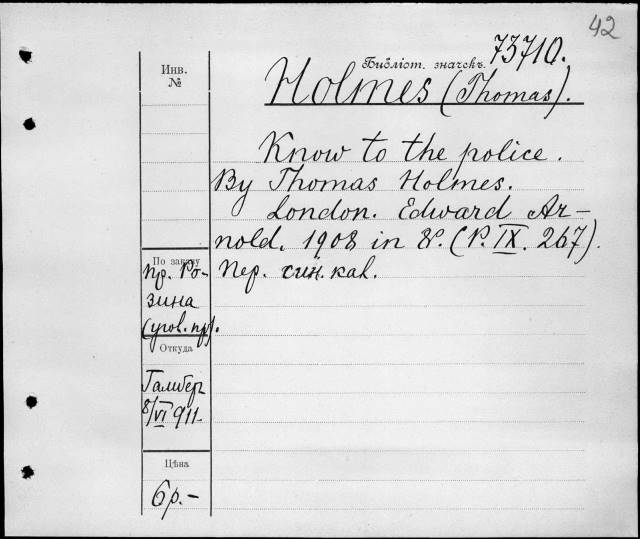 42
Инв.
№
Библіот. значекъ. 73710.
Holmes (Thomas).
Know to the police.
By Thomas Holmes.
London. Edward Ar-
nold. 1908 in 8º. (P. IX. 267).
По заказу
Пр. Ро-
зина
(угол. пр).
Пер. син. кал.
Откуда
8/VI 911
Цѣна
6 р. -